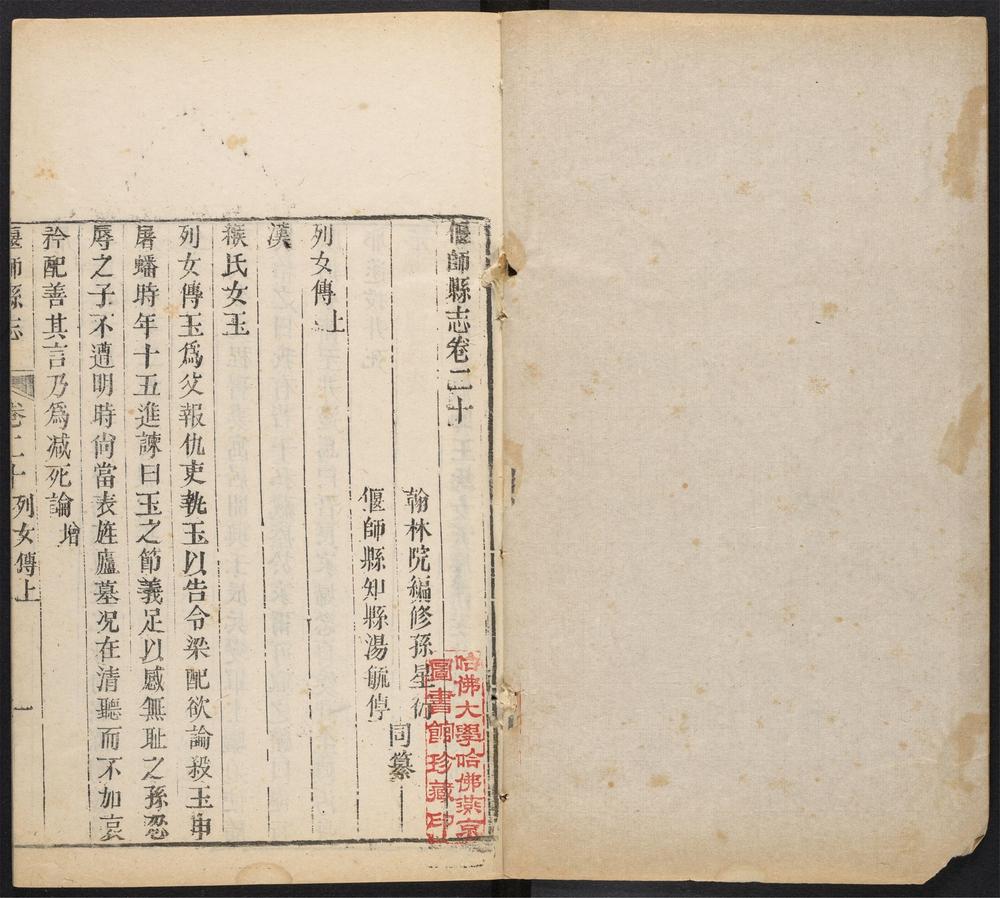 偃師縣志卷二十
翰林院編修孫星衍
偃師縣知縣湯毓倬
同纂
列女傳上
漢
緱氏女玉
列女傳玉爲父報仇吏執玉以告令梁配欲論殺玉申
屠蟠時年十五進諫曰玉之節義足以感無耻之孫恐
辱之子不遭明時尙當表旌廬墓况在清聽而不加哀
矜配善其言乃爲减死論增
偃師縣志
卷二十列女傳上
一
哈佛大學哈佛燕京
圖書館珍藏印